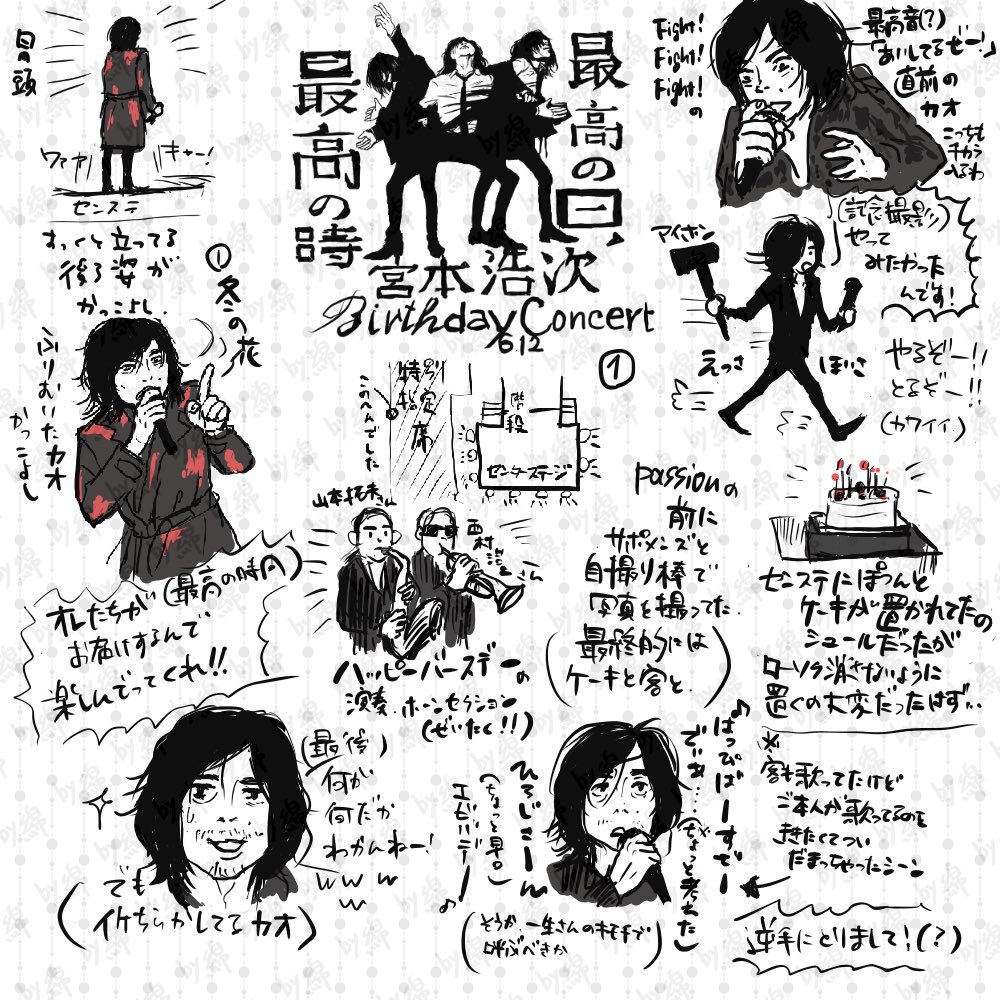 冒頭
ワァァ
キャー!
センステ
すっくと立ってる
後ろ姿が
かっこよし
最高の時
最高の日、
宮本浩次
Birthday Concert
6.12
①
Fight!
Fight!
Fight!
の
最高音(?)
「あいしてるぜー!」
直前の
カオ
こっちも
チカラ
入るわ
①
冬の花
ふりむいたカオ
かっこよし
特別
指定
席
このへんでした
階段
センターステージ
アイホン
(記念撮影)
やって
みたかった
んです!
えっさ
ほいさ
やるぞー!!
とるぞー!!
(カワイイ)
(最高の時間)
オレたちが
お届けするんで
楽しんでってくれ!!
山本拓夫さん
西村浩二さん
ハッピーバースデーの
演奏、ホーンセクション
(ぜいたく!!)
passionの
前に
サポメンズと
自撮り棒で
写真を撮ってた。
(最終的には
ケーキと客と。)
センステにぽつんと
ケーキが置かれてたの
シュールだったが
ローソク消さないように
置くの大変だったはず…
(最後)
何が
何だか
わかんねー!
www
w
(でも
イケちらかしてるカオ)
♪はっぴばーすでー
でぃあ……(ちょっと考えた)
ひろじさーん
(ちょっと早口)
エビバデー!
♪
(そうか、一生さんのキモチで
呼ぶべきか)
※
客も歌ってたけど
ご本人が歌ってるのを
ききたくてつい
だまっちゃったシーン
逆手にとりまして!(?)